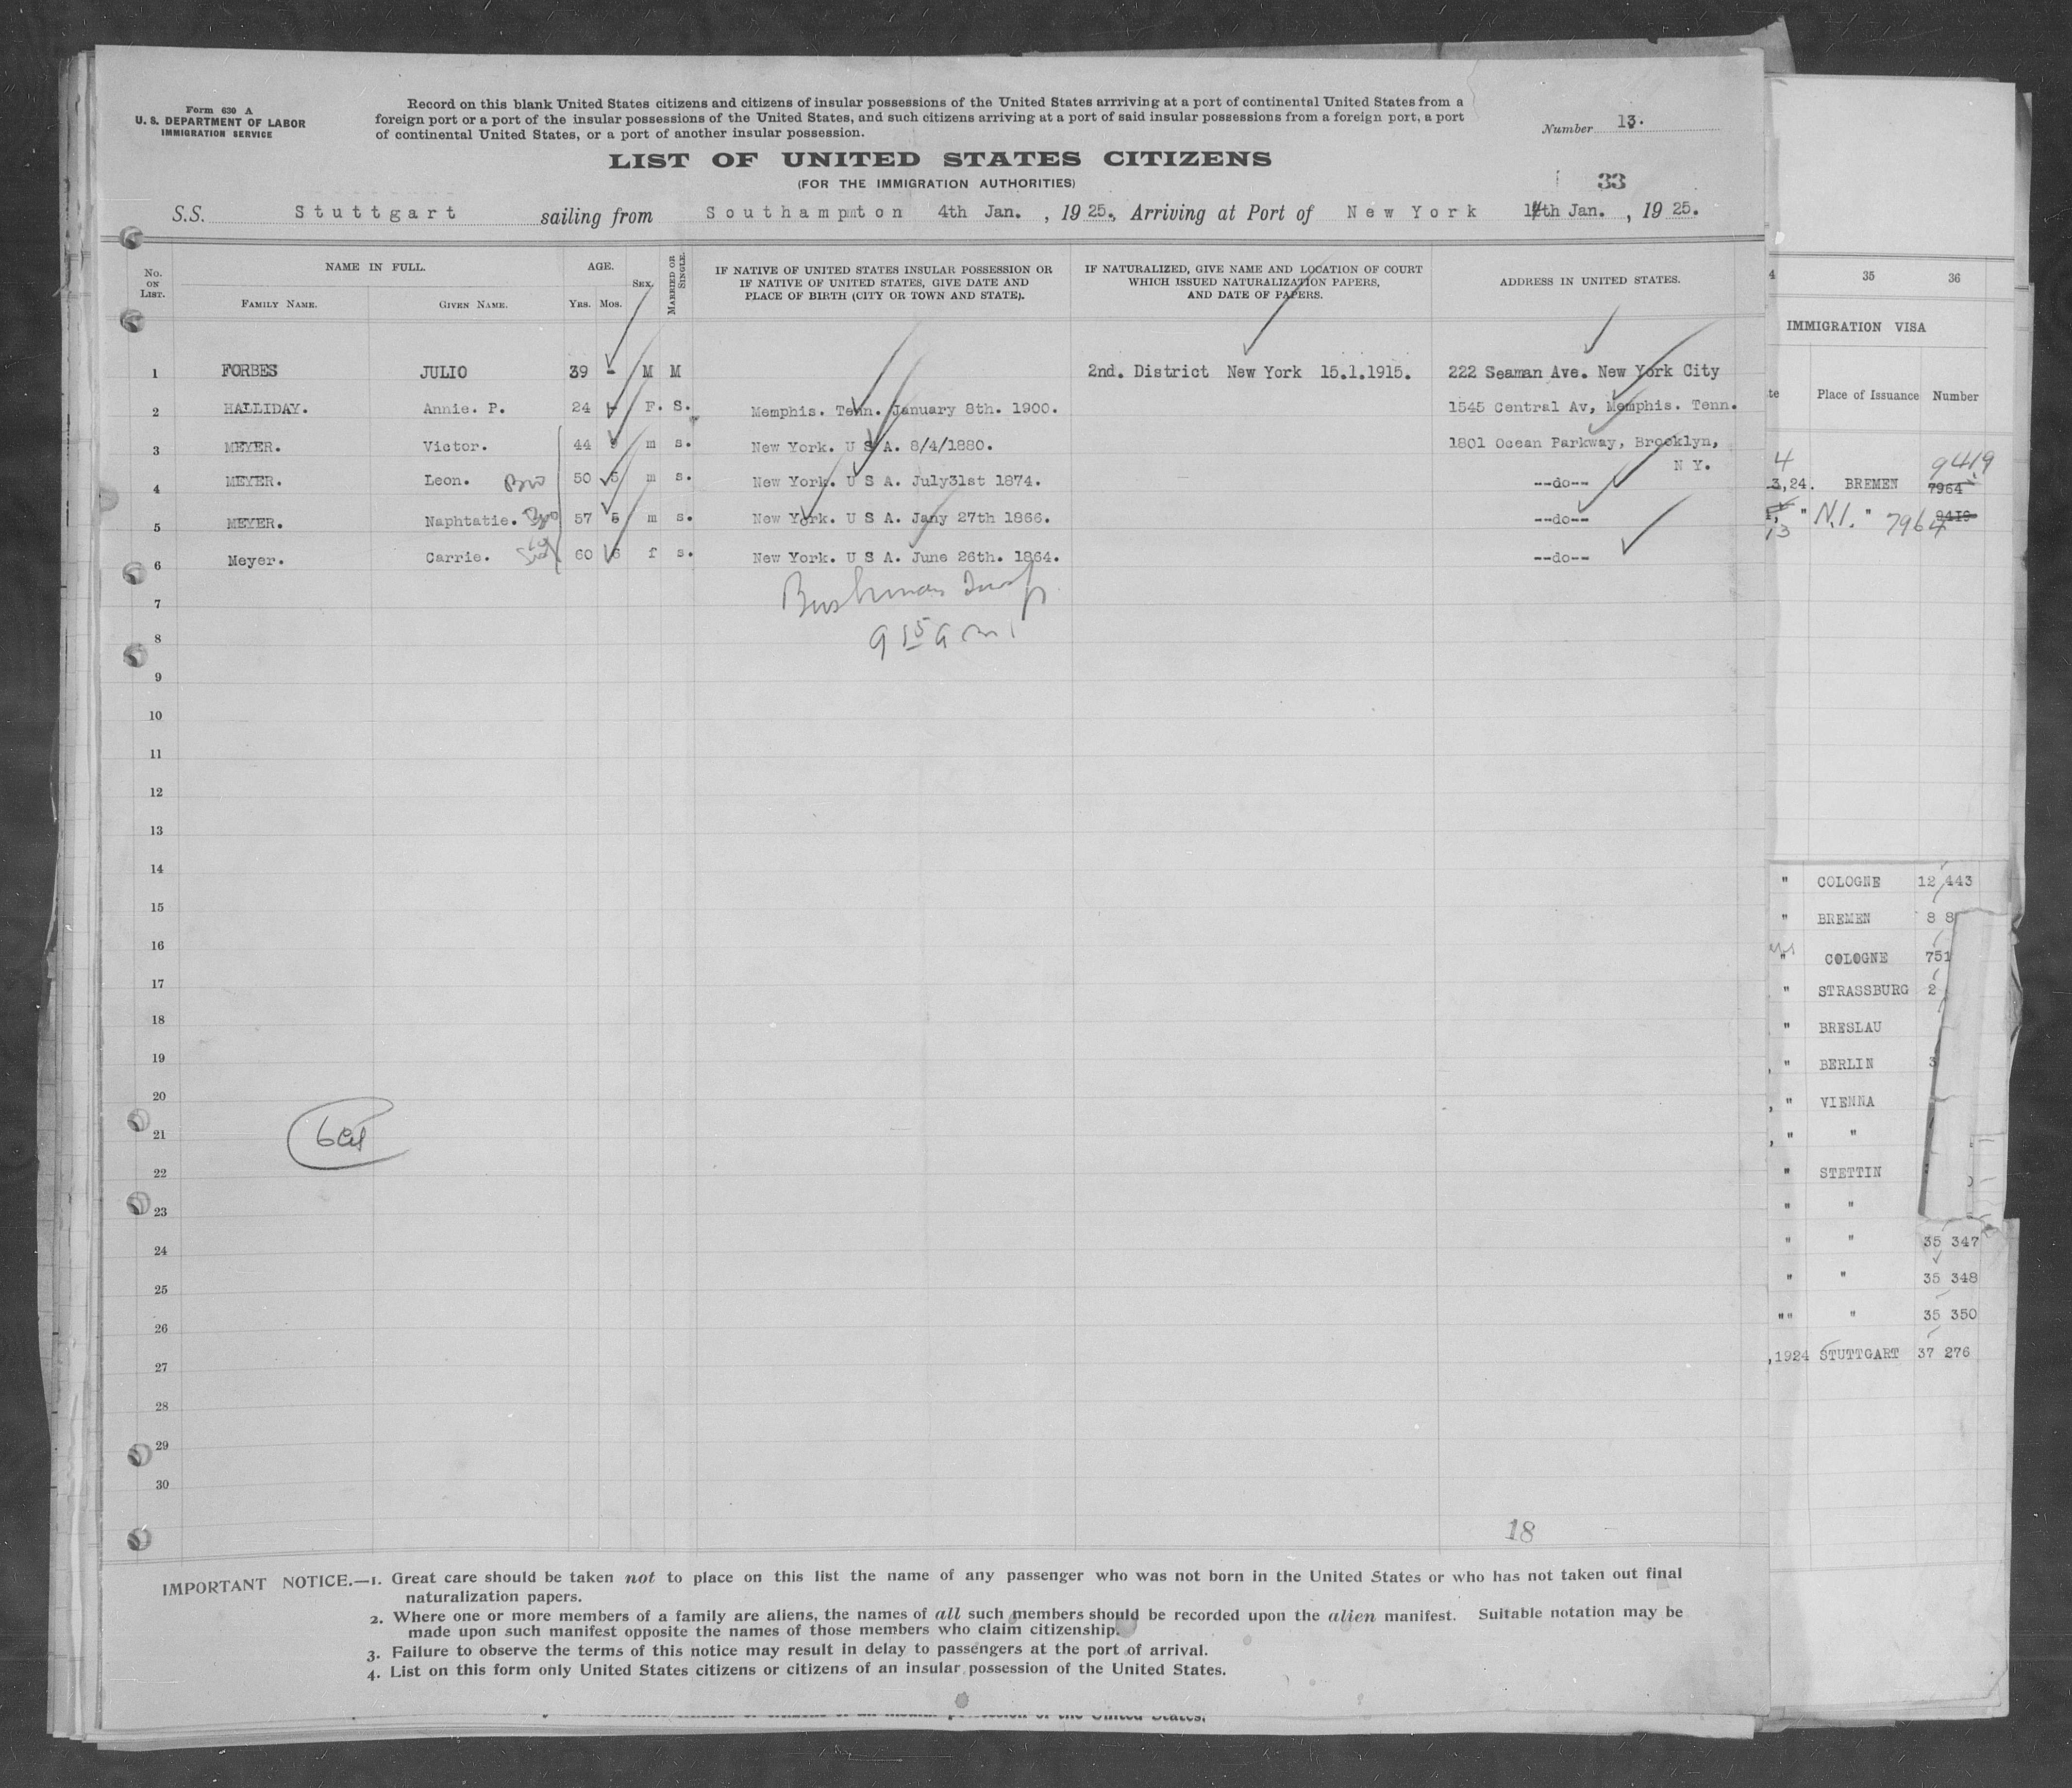 Form 630 A
U. S. DEPARTMENT OF LABOR
IMMIGRATION SERVICE
Record on this blank United States citizens and citizens of insular possessions of the United States arrriving at a port of continental United States from a
foreign port or a port of the insular possessions of the United States, and such citizens arriving at a port of said insular possessions from a foreign port, a port
of continental United States, or a port of another insular possession.
Number 13.
LIST OF UNITED STATES CITIZENS
(FOR THE IMMIGRATION AUTHORITIES)
33
S.S. Stuttgart sailing from Southampton 4th Jan. , 19 25., Arriving at Port of New York 14th Jan. , 19 25.
No. ON LIST. NAME IN FULL. AGE. SEX. MARRIED OR SINGLE. IF NATIVE OF UNITED STATES INSULAR POSSESSION OR IF NATIVE OF UNITED STATES, GIVE DATE AND PLACE OF BIRTH (CITY OR TOWN AND STATE). IF NATURALIZED, GIVE NAME AND LOCATION OF COURT WHICH ISSUED NATURALIZATION PAPERS, AND DATE OF PAPERS. ADDRESS IN UNITED STATES.
FAMILY NAME. GIVEN NAME. YRS. MOS.
1 FORBES JULIO 39 - M M 2nd. District New York 15.1.1915. 222 Seaman Ave. New York City
2 HALLIDAY. Annie. P. 24 - F. S. Memphis. Tenn. January 8th. 1900. 1545 Central Av, Memphis. Tenn.
3 MEYER. Victor. 44 9 m s. New York. U S A. 8/4/1880. 1801 Ocean Parkway, Brooklyn,
N Y.
4 MEYER. Leon. Bro 50 5 m s. New York. U S A. July31st 1874. --do--
5 MEYER. Naphtatie. Bro 57 5 m s. New York. U S A. Jany 27th 1866. --do--
6 Meyer. Carrie. 60 6 f s. New York. U S A. June 26th. 1864. --do--
7
8 9 15 a m
9
10
11
12
13
14
15
16
17
18
19
20
21
22
23
24
25
26
27
28
29
30
18
IMPORTANT NOTICE.—1. Great care should be taken not to place on this list the name of any passenger who was not born in the United States or who has not taken out final
naturalization papers.
2. Where one or more members of a family are aliens, the names of all such members should be recorded upon the alien manifest. Suitable notation may be
made upon such manifest opposite the names of those members who claim citizenship.
3. Failure to observe the terms of this notice may result in delay to passengers at the port of arrival.
4. List on this form only United States citizens or citizens of an insular possession of the United States.
4 35 36
IMMIGRATION VISA
te Place of Issuance Number
4 9419
3,24. BREMEN 7964
" N.I. " 7964 9419
13
" COLOGNE 12 443
" BREMEN 8 8
" COLOGNE 751
" STRASSBURG 2
" BRESLAU
, " BERLIN 3
, " VIENNA
, " "
" STETTIN
" "
" " 35 347
" " 35 348
"" " 35 350
,1924 STUTTGART 37 276